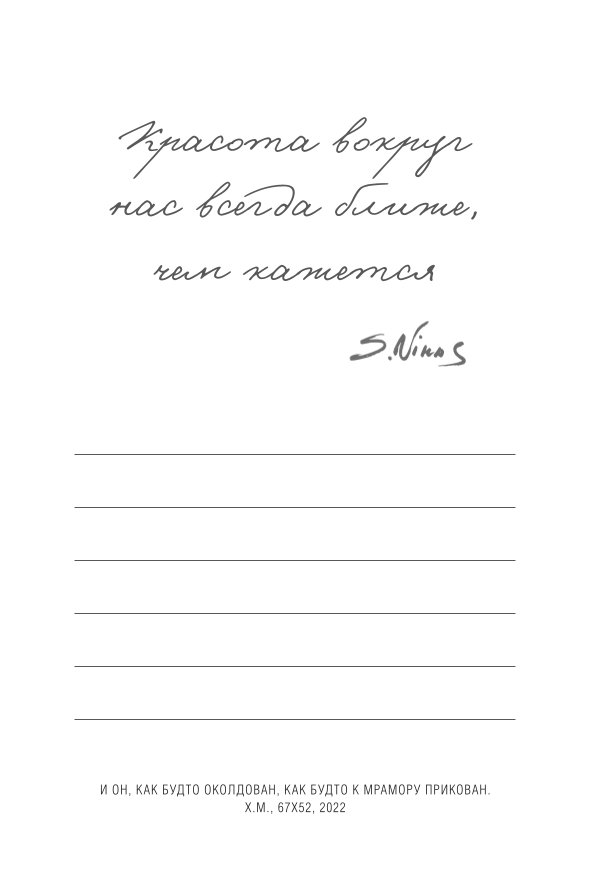 Красота вокруг
нас всегда ближе,
чем кажется
S.Ninas
И ОН, КАК БУДТО ОКОЛДОВАН, КАК БУДТО К МРАМОРУ ПРИКОВАН.
Х.М., 67Х52, 2022